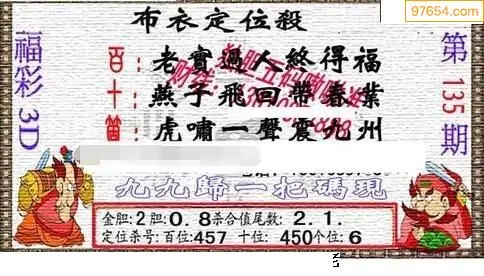 97654.com
布衣定位殺
福彩3D
第135期
百: 老實過人終得福
十: 燕子飛回帶春業
箇: 虎嘯一聲震九州
九九歸一把碼現
金胆:2胆:0.8杀合值尾数: 2.1.
定位杀号:百位:457 十位: 450个位:6